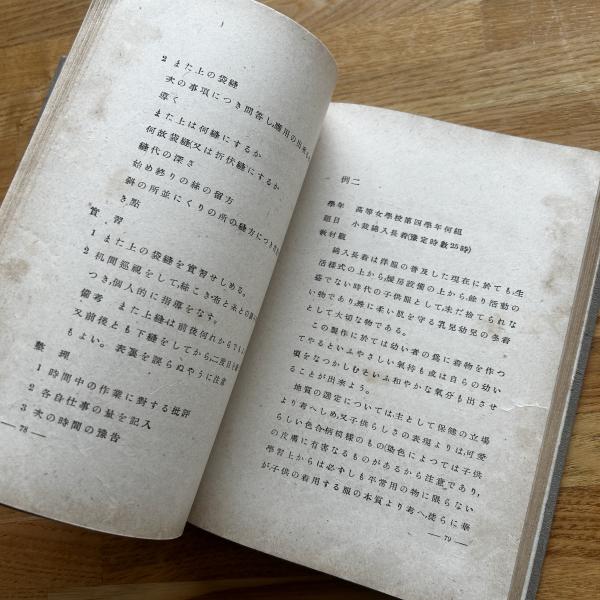 2 また上の袋縫
次の事項につき問答し,應用の出來
導く
また上は何縫にするか
何故袋縫(又は折伏縫にするか
縫代の深さ
始め終りの絲の留方
斜の所並にくりの所の縫方につき
き點
實習
1 また上の袋縫を實習せしめる。
2 机間巡視をして,絲こき・布と木との
つき,個人的に指導をなす。
備考 また上縫は前後何れからでも
又前後とも下縫をしてから,二度目を
もよい。表裏を誤らぬやうに注意
整理
1 時間中の作業に對する批評
2 各自仕事の量を記入
3 次の時間の豫告
— 78 —
例二
學年 高等女學校第四學年何組
題目 小裁綿入長着(豫定時數25時)
教材觀
綿入長着は洋服の普及した現在に於ても,生
活樣式の上から,煖房設備の上から,餘り活動の
姿でない時代の子供服として,未だ捨てられな
い物であり,殊に柔い肌を守る乳兒幼兒の冬着
として大切な物である。
この製作に於ては幼い者の爲に着物を作つ
てやるといふやさしい氣持も或は自らの幼い
頃をなつかしむといふ和やかな氣分も出させ
ることが出來よう。
地質の選定については,主として保健の立場
より考へしめ,又子供らしさの表現よりは,可愛
らしい色合・柄模樣のもの(染色によつては子供
の皮膚に有害なるものがあるから注意)であり,
學習上からは必ずしも平常用の物に限らない
が,子供の着用する服の本質より考へ,徒らに華
— 79 —